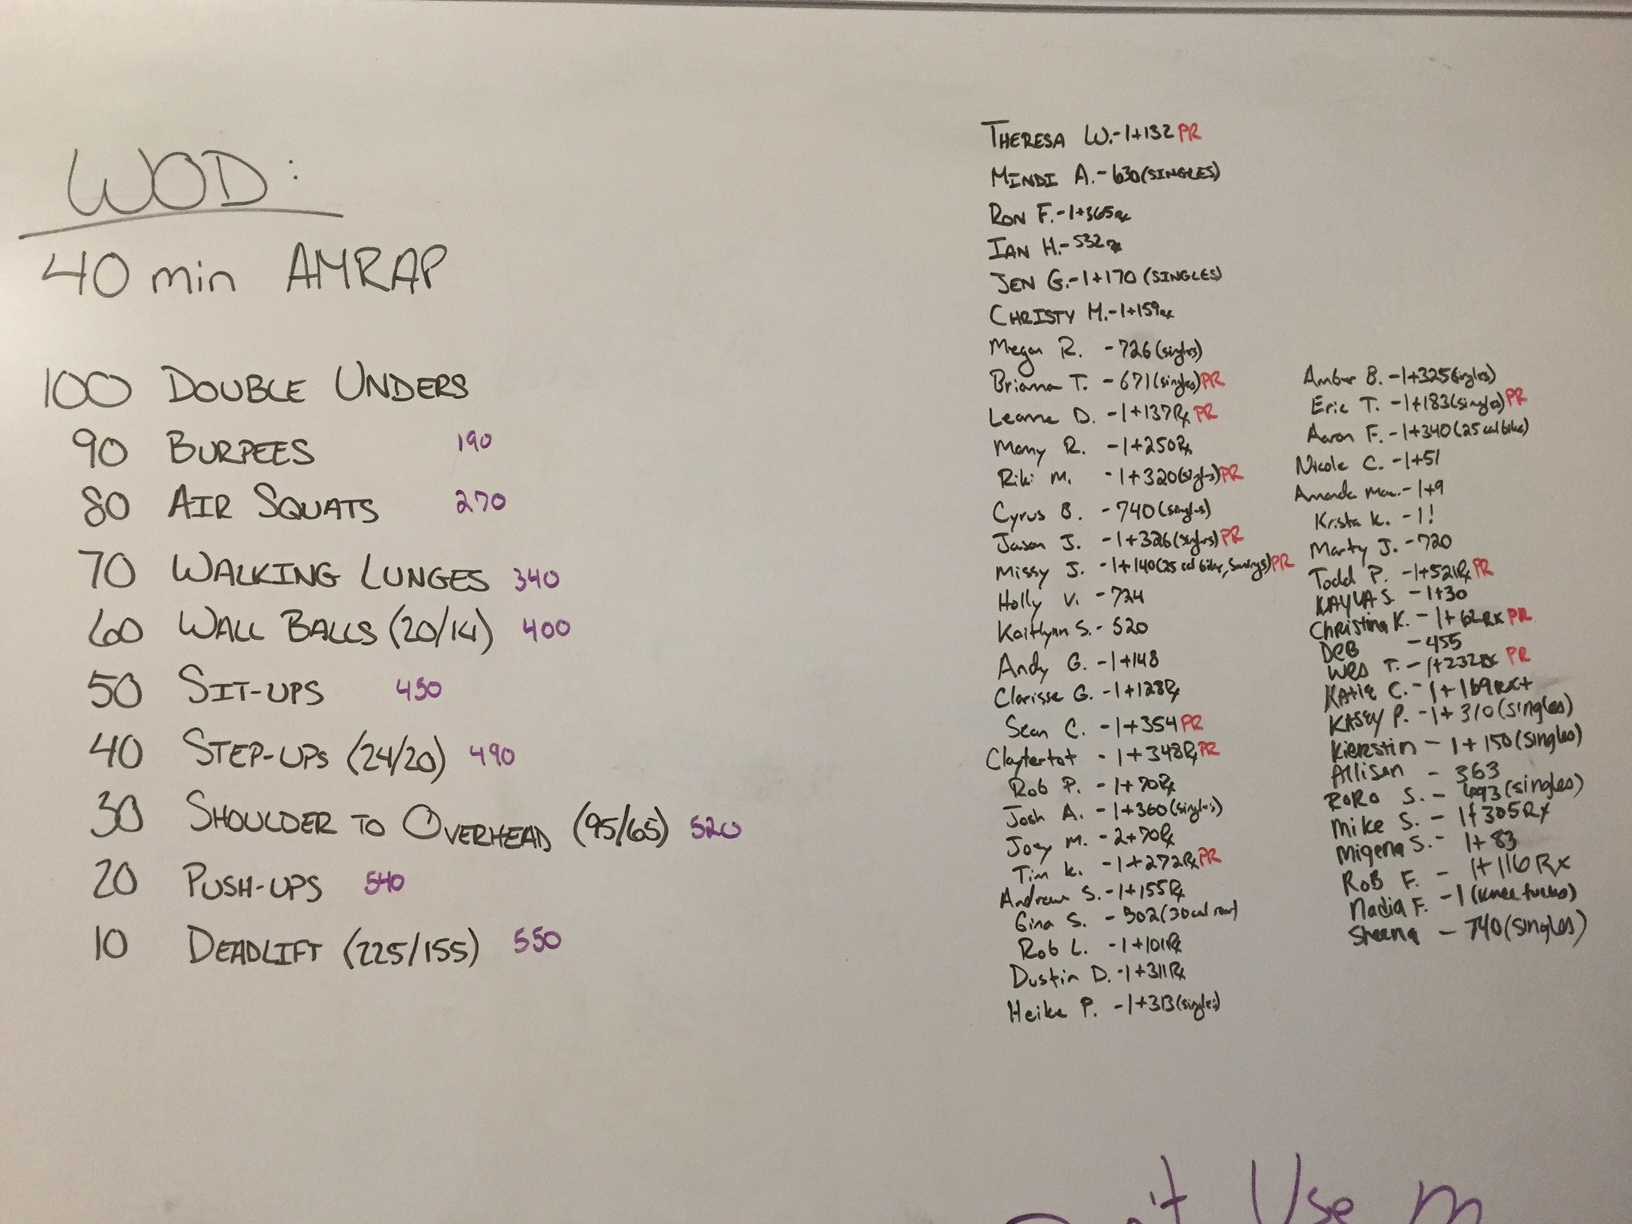 WOD:
40 min AMRAP
100 DOUBLE UNDERS
90 BURPEES 190
80 AIR SQUATS 270
70 WALKING LUNGES 340
60 WALL BALLS (20/14) 400
50 SIT-UPS 450
40 STEP-UPS (24/20) 490
30 SHOULDER TO OVERHEAD (95/65) 520
20 PUSH-UPS 540
10 DEADLIFT (225/155) 550
THERESA W.-1+132 PR
MINDI A.-630(SINGLES)
RON F.-1+365Rx
IAN H.-532
JEN G.-1+170 (SINGLES)
CHRISTY M.-1+159Rx
Megan R. -726(singles)
Brianna T. -671(singles)PR
Leanne D. -1+137Rx PR
Many R. -1+250Rx
Riki M. -1+320(singles)PR
Cyrus B. -740(singles)
Jason J. -1+326(singles)PR
Missy J. -1+140(25 cal bike, )PR
Holly V. -724
Kaitlynn S.-520
Andy G. -1+148
Clarisse G.-1+128Rx
Sean C. -1+354 PR
Claytertot -1+348Rx PR
Rob P. -1+70Rx
Josh A. -1+360(singles)
Joey M. -2+70Rx
Tim K. -1+272Rx PR
Andrew S.-1+155Rx
Gina S. -502(30cal row)
Rob L. -1+101Rx
Dustin D.-1+311Rx
Heike P. -1+313(singles)
Amber B.-1+325(singles)
Eric T. -1+183(singles)PR
Aaron F.-1+340(25 cal bike)
Nicole C. -1+51
Amanda Mac.-1+9
Krista K. -1!
Marty J.-720
Todd P. -1+521Rx PR
KAYLA S. -1+30
Christina K.-1+62Rx PR
DEB -455
WES T.-1+232Rx PR
KATIE C.-1+169Rx+
KASEY P.-1+310(singles)
Kierstin -1+150(singles)
Allison -363
RORO S.-493(singles)
Mike S.-1+305Rx
Migena S.-1+83
ROB F. -1+116Rx
Nadia F.-1(knee tucks)
Sheena -740(singles)
Use